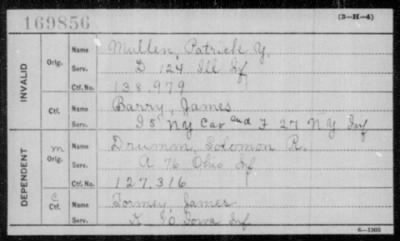 169856
(3-H-4)
INVALID
Orig.
Name Mullen, Patrick Y.
Serv. D 124 Ill Inf
Ctf. No. 138,979
Ctf.
Name Barry, James
Serv. I 5 NY Cav and F 27 N.Y. Inf
DEPENDENT
m
Orig.
Name Drumm, Solomon R.
Serv. A 76 Ohio Inf
Ctf. No. 127,316
C
Ctf.
Name Tormey, James
Serv. K 10 Iowa Inf
6-1305